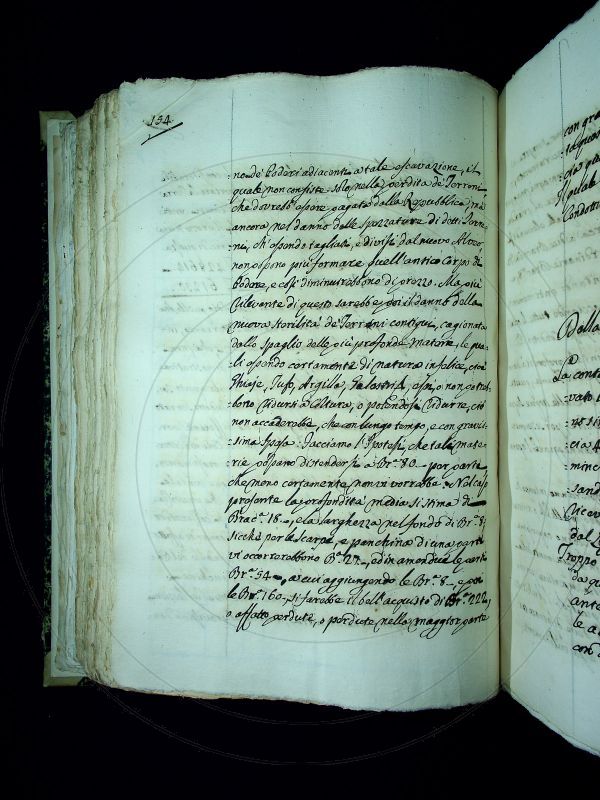 154
:no de Poderi adiacenti a tale escavazione, il
quale non consiste solo nella perdita de Terreni
che dovrebb' essere pagata dalla Repubblica, mà
ancora nel danno delle spezzature di detti Terre:
:ni, ch' essendo tagliati, e divisi dal nuovo Alveo,
non possono più formare quell' antico Corpo di
Podere, e così diminuirebbono di prezzo. Mà più
rilevante di questo sarebbe poi il danno della
nuova sterilità de Terreni contigui, cagionata
dallo spaglio delle più profonde materie, le qua:
:li essendo certamente di natura infelice, cioè
Ghiaje, Tufo, Argilla,
bono ridursi a Coltura, o potendosi ridurre, ciò
non accaderebbe, che con lungo tempo, e con gravis:
:sima spesa. Facciamo l' Ipotesi, che tali mate:
:rie possano distendersi a Br.ª 80. per parte,
che meno certamente non vi vorrebbe. Nel caso
presente la profondità media si stima di
Brac.ª 18., e la larghezza nel fondo di Br.ª 8.
sicchè per le scarpe, e panchina di una parte
vi occorrerebbono B.ª 27., ed in amendue le parti
Br.ª 54., a cui aggiungendo le Br.ª 8., e poi
le Br.ª 160., si farebbe il bell' acquisto di Br.ª 222.,
o affatto perdute, o perdute nella maggior parte
con gra
Della
La conti
vato
mine
Sand
ricev
dal
Troppo
da qu
ante
le a
con